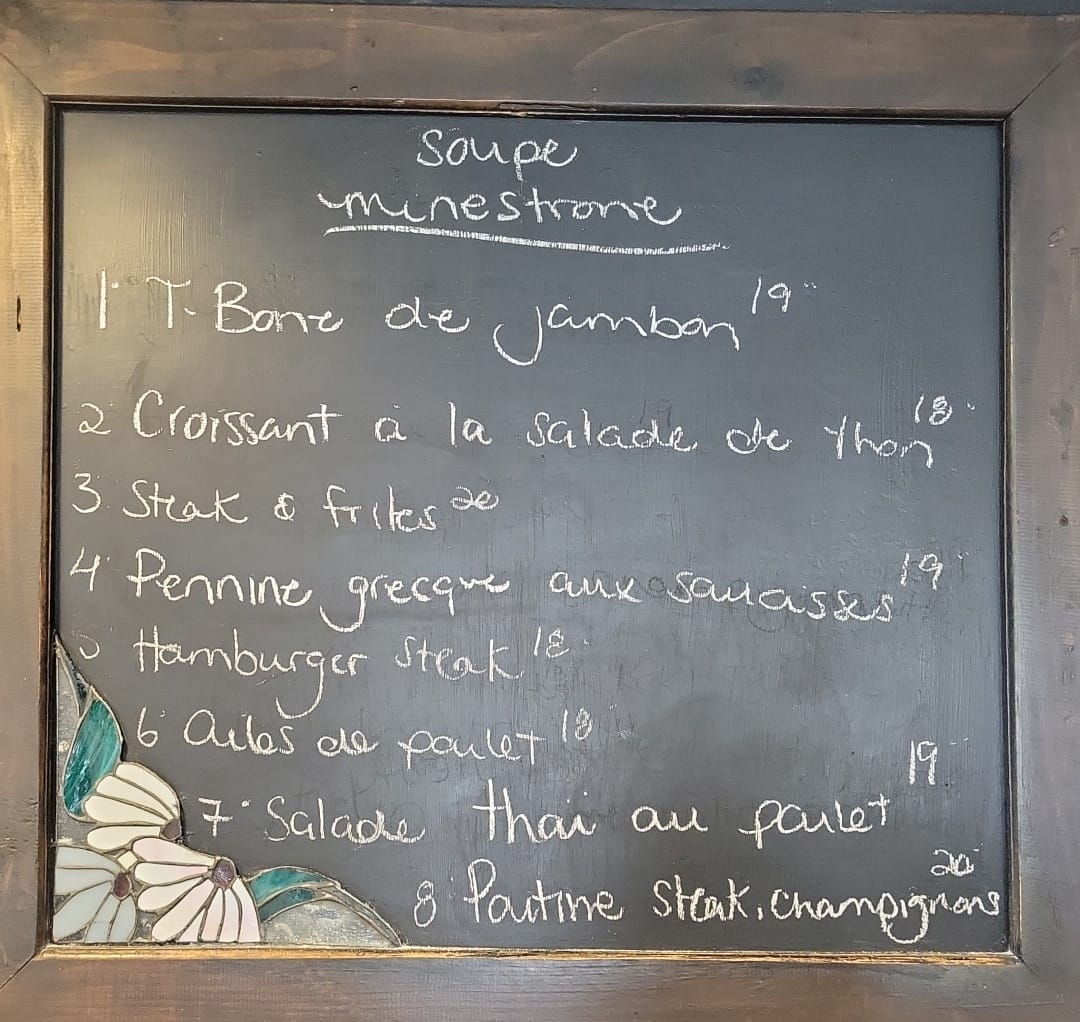 Soupe
minestrone
1. T-Bone de jambon 19
2 Croissant à la salade de thon 18
3. Steak & frites 20
4 Pennine grecque aux saucisses 19
5 Hamburger steak 18
6 Ailes de poulet 18
7 Salade thaï au poulet 19
8 Poutine steak, champignons 20